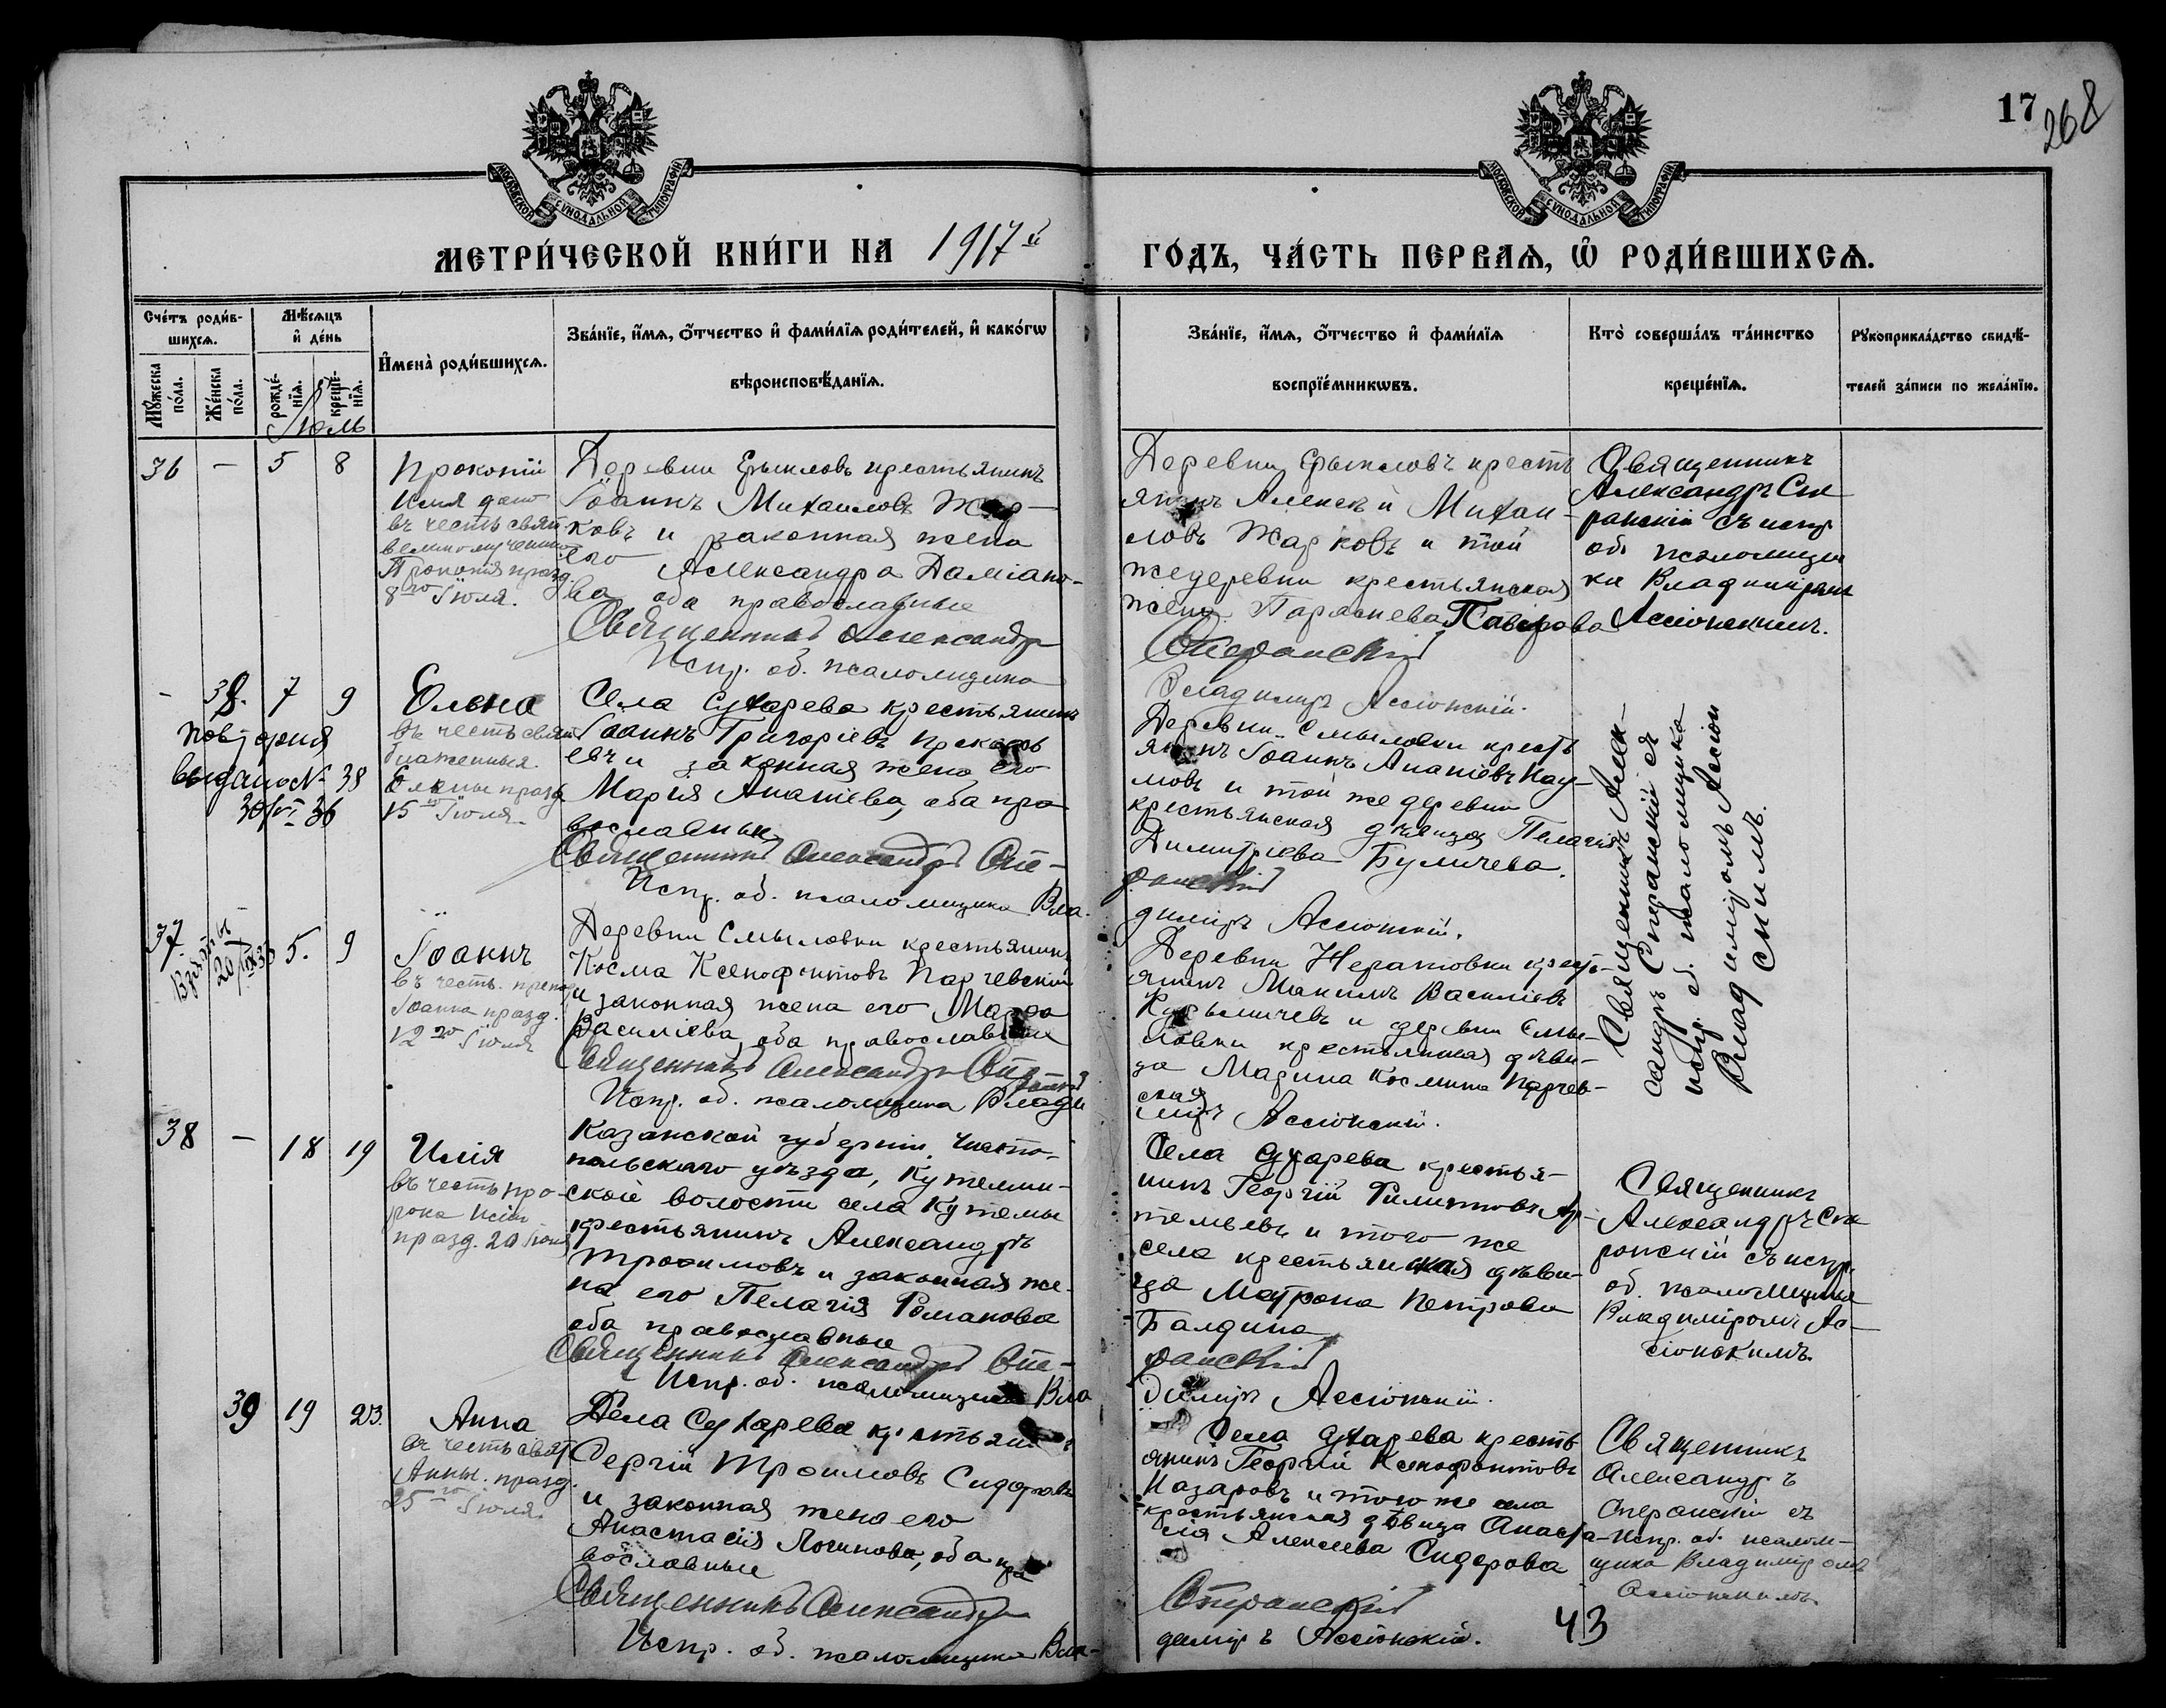 17
268
МОСКОВСКОЙ СѴНОДАЛЬНОЙ ТИПОГРАФІИ
МОСКОВСКОЙ СѴНОДАЛЬНОЙ ТИПОГРАФІИ
МЕТРИ́ЧЕСКОЙ КНИ́ГИ НА 1917й
ГО́ДЪ, ЧА́СТЬ ПЕРВАѦ, Ѡ РОДИ́ВШИХСѦ.
Сче́тъ роди́в-
шихсѧ.
Мꙋ́жеска
по́ла.
Же́нска
по́ла.
Мѣ́сѧцъ
и҆ де́нь
рожде́-
нїѧ.
креще́-
нїѧ.
Юль
И҆мена̀ роди́вшихсѧ.
Зва́нїе, и҆́мѧ, ѻ҆́тчество и҆ фами́лїѧ роди́телей, и҆ како́гѡ
вѣроисповѣ́данїѧ.
Зва́нїе, и҆́мѧ, ѻ҆́тчество и҆ фами́лїѧ
воспрїе́мникѡвъ.
Кто̀ соверша́лъ та́инство
креще́нїѧ.
Рꙋкоприкла́дство свидѣ́-
телей за́писи по жела́нїю.
36 — 5 8
Прокопій
Имя дано
въ честь свят
великомученика
Прокопія празд.
8го Іюля.
Деревни Ерыкловъ крестьянинъ
Іоаннъ Михаиловъ Жар-
ковъ и законная жена
его Александра Даміано-
ва оба православные
Священникъ Александръ
Испр. об. псаломщика
Деревни Ерыкловъ крест
янинъ Алексѣй Михаи-
ловъ Жарковъ и той
же деревни крестьянская
жена Параскева
Сперанскій
Владимиръ Ассіонскій.
Священникъ
Александръ Спе
ранскій съ испр
об. псаломщи
ка Владиміромъ
Ассіонскимъ.
- 38. 7 9
повторная
выдано № 38
30/VI 36
Елена
въ честь свят
блаженныя
Елены празд
15го Іюля.
Села Сухарева крестьянинъ
Іоаннъ Григоріевъ Прокофь
евъ и законная жена его
Марія Ананіева, оба пра
вославные
Священникъ Александръ Спе-
Испр. об. псаломщика Вла-
Деревни Смыловки крестъ
янинъ Іоаннъ Ананіевъ Нау-
мовъ и той же деревни
крестьянская дѣвица Пелагія
Димитріева Буличева.
ранскій
диміръ Ассіонскій.
Священникъ Алек-
сандръ Сперанскій съ
испр. об. псаломщика
Владиміромъ Ассіон
скимъ.
37. 5. 9
Іоаннъ
въ честь. препод
Іоанна празд.
12го Іюля
Деревни Смыловки крестьянинъ
Косма Ксенофонтовъ Парчевскій
и законная жена его Марѳа
Василіева, оба православные
Священникъ Александръ Спе-
ранскій
Испр. об. псаломщика Влади
Деревни Нератовки кресть-
янинъ Максимъ Василіевъ
и деревни Смы-
ловки крестьянская дѣви-
ца Марина Космина Парчев-
ская
міръ Ассіонскій.
38 — 18 19
Илія
въ честь про-
рока Иліи
празд. 20 Іюля
Казанской губерніи, Чисто-
польскаго уѣзда, Кутемин-
ской волости села Кутемы
крестьянинъ Александръ
Трофимовъ и законная же-
на его Пелагія Романова
оба православные
Священникъ Александръ Спе-
Испр. об. псаломщика Вла
Села Сухарева крестья-
нинъ Георгій Филиповъ Ар-
темьевъ и того же
села крестьянская дѣви-
ца Матрона Петрова
Балдина
ранскій
диміръ Ассіонскій.
Священникъ
Александръ Спе
ранскій съ испр.
об. псаломщика
Владиміромъ Ас-
сіонскимъ.
39 19 23.
Анна
въ честь свят
Анны. празд.
25го Іюля.
Села Сухарева крестьянинъ
Сергій Трофимовъ Сидоровъ
и законная жена его
Анастасія Логинова, оба пра
вославные
Священникъ Александръ
Испр. об. псаломщика Вла-
Села Сухарева кресть
янинъ Георгій Ксенофонтовъ
Назаровъ и того же села
крестьянская дѣвица Анаста-
сія Алексѣева Сидорова
Сперанскій
диміръ Ассіонскій.
Священникъ
Александръ
Сперанскій съ
испр. об. псалом-
щика Владиміромъ
Ассіонскимъ.
43